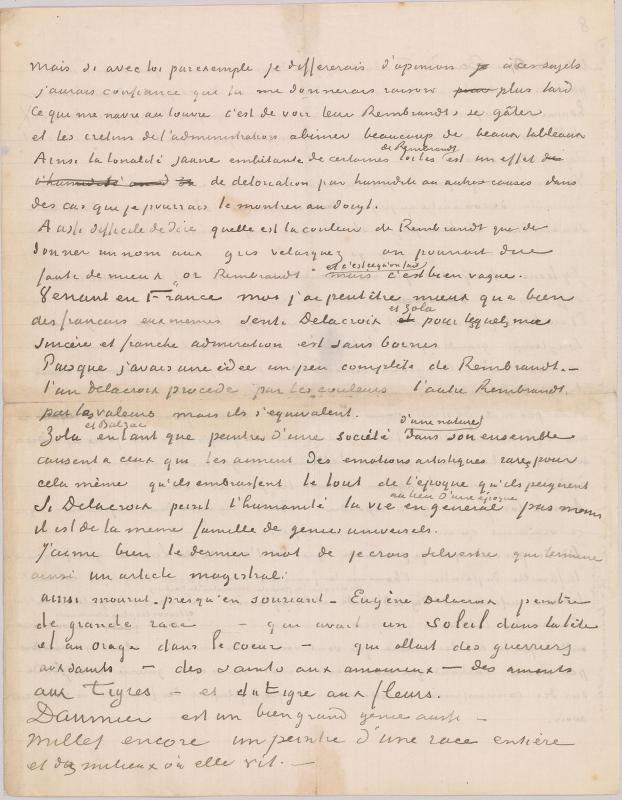 mais si avec toi par exemple je differerais d'opinion je à ces sujets
j'aurais confiance que tu me donnerais raison pour plus tard
Ce que me navre au louvre c'est de voir leur Rembrandts se gâter
et les cretins de l'administration abimer beaucoup de beaux tableaux
de Rembrandt
Ainsi la tonalité jaune embêtante de certaines toiles est un effet de
l'humidité de deterioration par humidité ou autres causes dans
des cas que je pourrais te montrer au doigt.
Aussi difficile de dire quelle est la couleur de Rembrandt que de
donner un nom aux gris velasquez on pourrait dire
et c'est ce qu'on fait
faute de mieux "or Rembrandt" mais c'est bien vague.
Venant en France moi j'ai peutêtre mieux que bien
et Zola
des français eux mêmes senti Delacroix et pour lesquels ma
sincère et franche admiration est sans bornes
Puisque j'avais une idée un peu complète de Rembrandt. —
l'un Delacroix procede par les couleurs l'autre Rembrandt
par les valeurs mais ils s'equivalent.
et Balzac d'une nature
Zola en tant que peintres d'une société dans son ensemble
causent à ceux qui les aiment des emotions artistiques rares pour
cela même qu'ils embrassent le tout de l'époque qu'ils peignent
au lieu d'une époque
Si Delacroix peint l'humanité la vie en général pas moins
il est de la meme famille de genies universels.
J'aime bien le dernier mot de je crois silvestre qui termine
ainsi un article magistral:
ainsi mourut – presqu'en souriant – Eugène Delacroix peintre
de grande race – qui avait un soleil dans la tête
et un orage dans le coeur – qui allait des guerriers
aux saints – des saints aux amoureux – des amants
aux tigres – et du tigre aux fleurs.
Daumier est un bien grand genie aussi –
Millet encore un peintre d'une race entière
et des milieux où elle vit. —